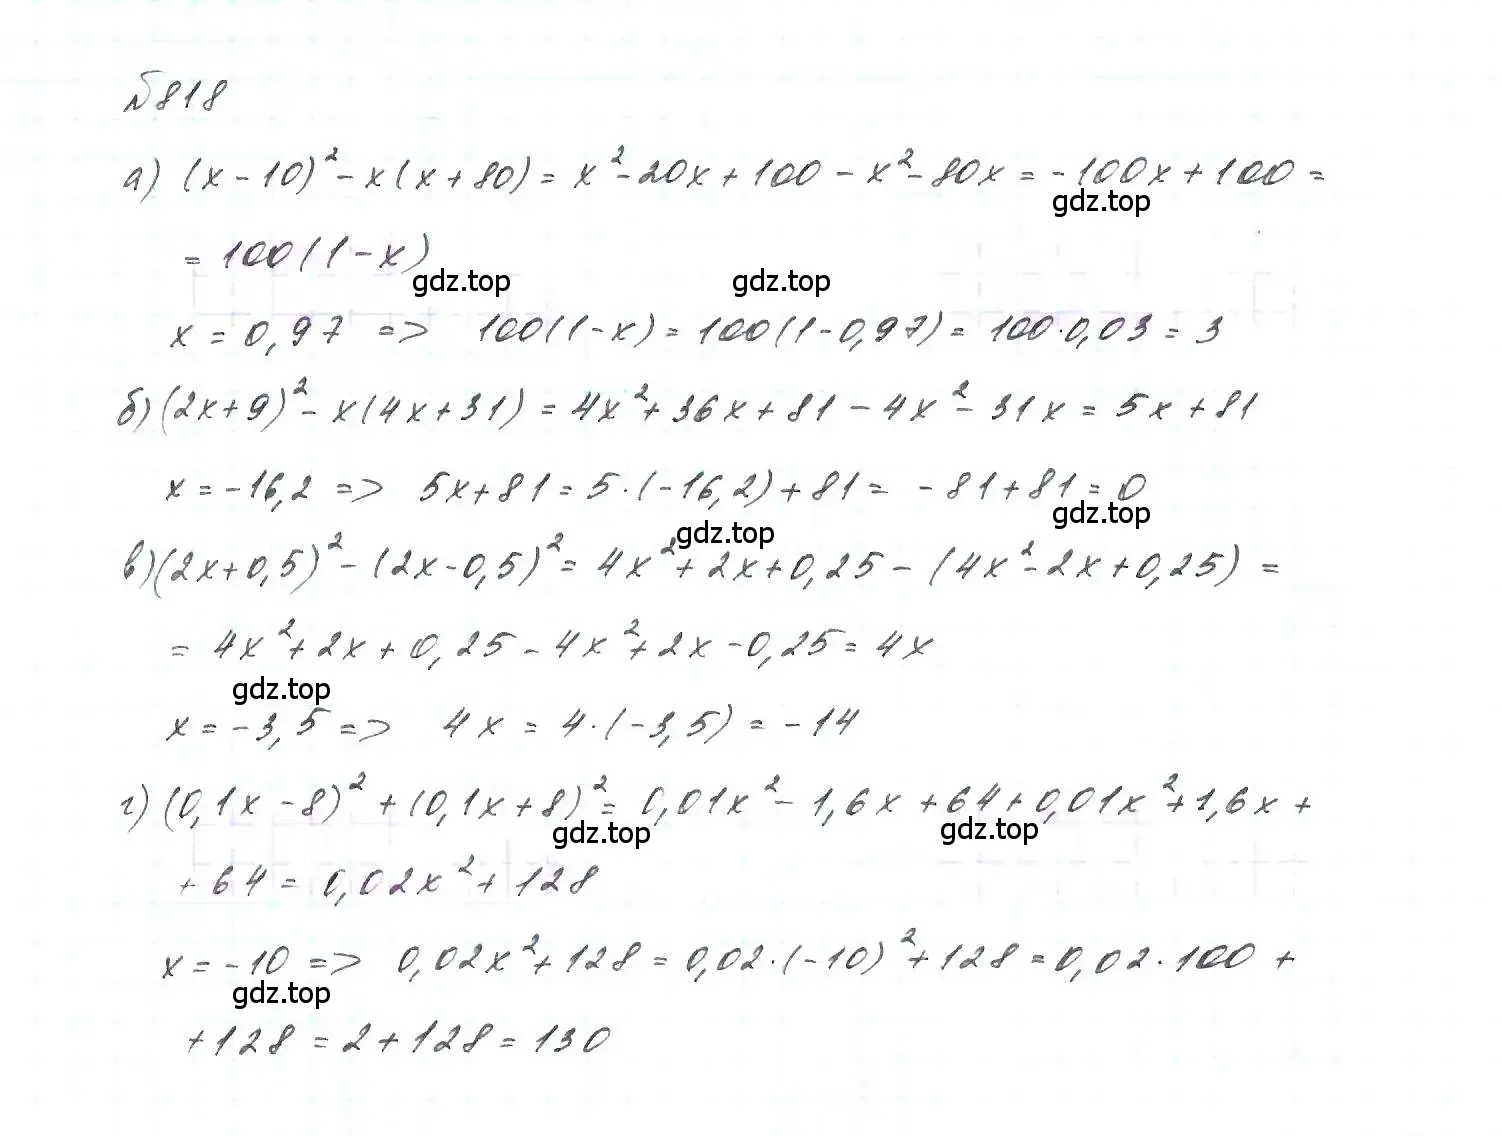 №818
а) (x-10)²-x(x+80)=x²-20x+100-x²-80x=-100x+100=
gdz.top
=100(1-x)
gdz.top gdz.top
x=0,97 => 100(1-x)=100(1-0,97)=100·0,03=3
б)(2x+9)²-x(4x+31)=4x²+36x+81-4x²-31x=5x+81
x=-16,2 => 5x+81=5·(-16,2)+81=-81+81=0
gdz.top gdz.top
в)(2x+0,5)²-(2x-0,5)²=4x²+2x+0,25-(4x²-2x+0,25)=
=4x²+2x+0,25-4x²+2x-0,25=4x
gdz.top
x=-3,5=> 4x=4·(-3,5)=-14
г)(0,1x-8)²+(0,1x+8)²=0,01x²-1,6x+64+0,01x²+1,6x+
gdz.top gdz.top
+64=0,02x²+128
x=-10 => 0,02x²+128=0,02·(-10)²+128=0,02·100+
gdz.top
+128=2+128=130